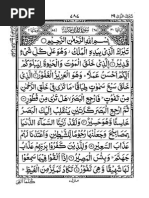 بِسْمِ اللهِ الرَّحْمٰنِ الرَّحِيْمِ
تَبٰرَكَ الَّذِيْ بِيَدِهِ الْمُلْكُ وَهُوَ عَلٰى كُلِّ شَيْءٍ
قَدِيْرُ الَّذِيْ خَلَقَ الْمَوْتَ وَالْحَيٰوةَ لِيَبْلُوَكُمْ
اَيُّكُمْ اَحْسَنُ عَمَلًا وَهُوَ الْعَزِيْزُ الْغَفُوْرُ الَّذِيْ
خَلَقَ سَبْعَ سَمٰوٰتٍ طِبَاقًا مَا تَرٰى فِيْ خَلْقِ الرَّحْمٰنِ
مِنْ تَفٰوُتٍ فَارْجِعِ الْبَصَرَ هَلْ تَرٰى مِنْ فُطُوْرٍ ثُمَّ
ارْجِعِ الْبَصَرَ كَرَّتَيْنِ يَنْقَلِبْ اِلَيْكَ الْبَصَرُ خَاسِئًا
وَّهُوَ حَسِيْرٌ وَلَقَدْ زَيَّنَّا السَّمَآءَ الدُّنْيَا
بِمَصَابِيْحَ وَجَعَلْنٰهَا رُجُوْمًا لِّلشَّيٰطِيْنِ وَاَعْتَدْنَا
لَهُمْ عَذَابَ السَّعِيْرِ وَلِلَّذِيْنَ كَفَرُوْا بِرَبِّهِمْ عَذَابُ